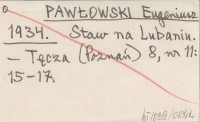 PAWŁOWSKI Eugeniusz
1934. Staw na Lubaniu.
— Tęcza (Poznań) 8, nr 11:
15-17.